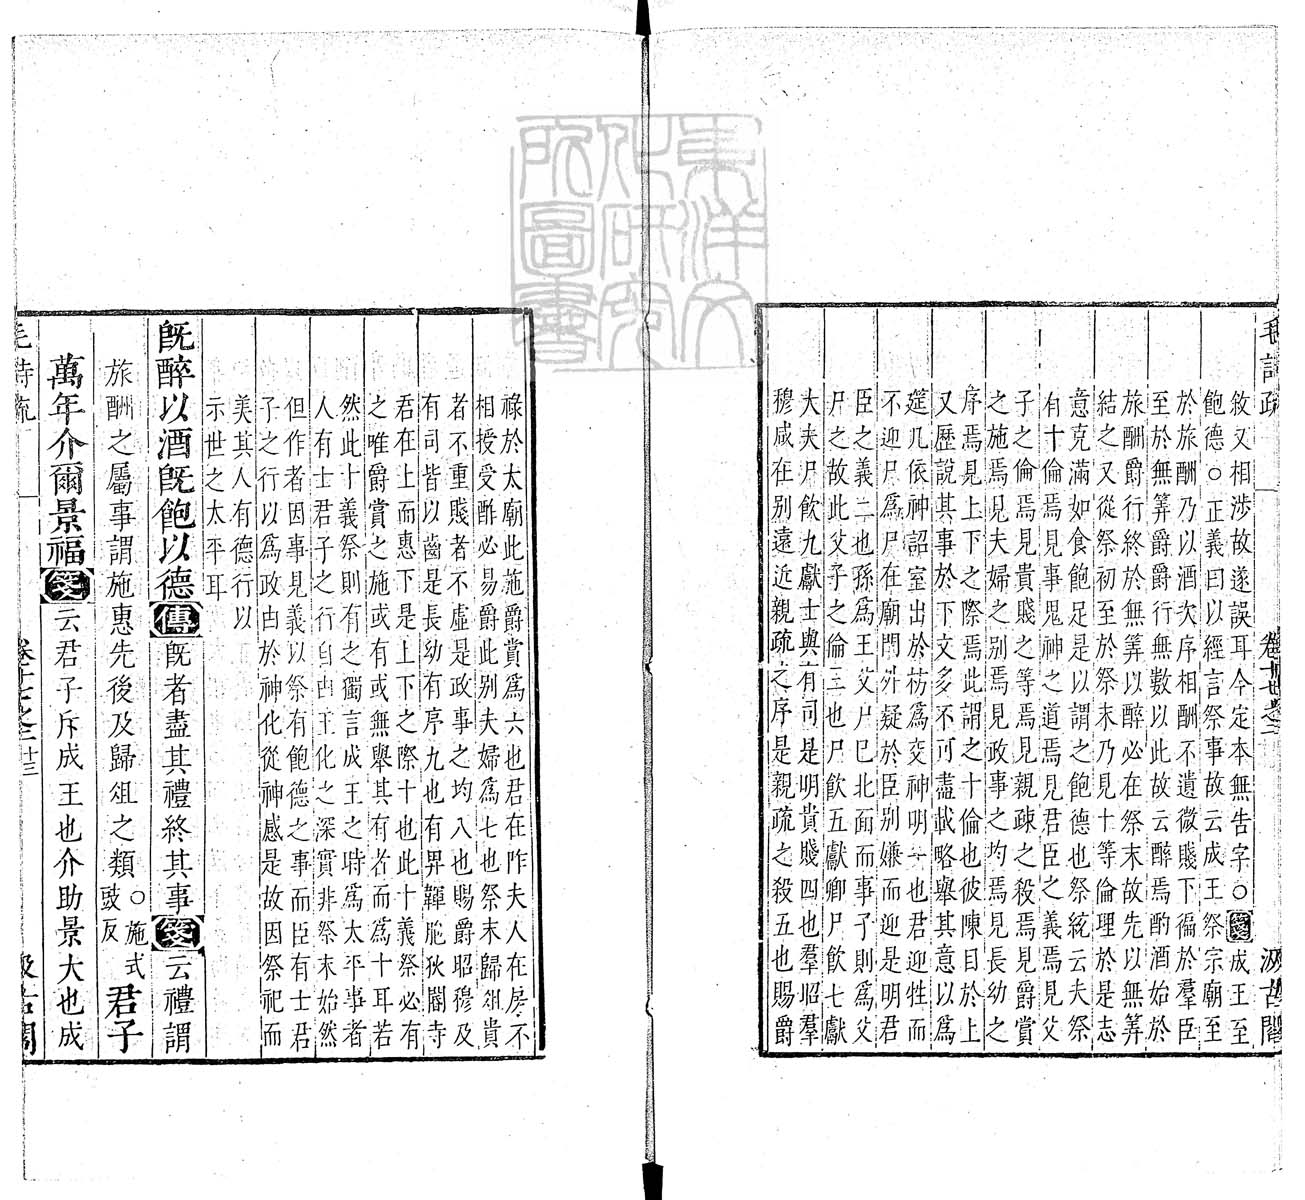 敘又相涉故遂誤耳今定本無告字○箋成王至
飽德○正義曰以經言祭事故云成王祭宗廟至
於旅酬乃以酒次序相酬不遺微賤下徧於羣臣
至於無筭爵爵行無數以此故云醉焉酌酒始於
旅酬爵行終於無筭以醉必在祭末故先以無筭
結之又從祭初至於祭末乃見十等倫理於是志
意克滿如食飽足是以謂之飽德也祭統云夫祭
有十倫焉見事鬼神之道焉見君臣之義焉見父
子之倫焉見貴賤之等焉見親疎之殺焉見爵賞
之施焉見夫婦之別焉見政事之均焉見長幼之
序焉見上下之際焉此謂之十倫也彼陳目於上
又歷說其事於下文多不可盡載略舉其意以爲
筵几依神詔室出於祊爲交神明一也君迎牲而
不迎尸爲尸在廟門外疑於臣別嫌而迎是明君
臣之義二也孫爲王父尸巳北面而事子則爲父
尸之故此父子之倫三也尸飲五獻卿尸飲七獻
大夫尸飲九獻士與有司是明貴賤四也羣昭羣
穆咸在別遠近親疏之序是親疏之殺五也賜爵
祿於太廟此施爵賞爲六也君在阼夫人在房不
相授受酢必易爵此別夫婦爲七也祭末歸俎貴
者不重賤者不虛是政事之均八也賜爵昭穆及
有司皆以齒是長幼有序九也有畀煇胞狄閽寺
君在上而惠下是上下之際十也此十義祭必有
之唯爵賞之施或有或無舉其有者而爲十耳若
然此十義祭則有之獨言成王之時爲太平事者
人有士君子之行自由王化之深實非祭末始然
但作者因事見義以祭有飽德之事而臣有士君
子之行以爲政由於神化從神感是故因祭祀而
美其人有德行以
示世之太平耳
旣醉以酒旣飽以德傳旣者盡其禮終其事箋云禮謂
旅酬之屬事謂施惠先後及歸俎之類○施式豉反君子
萬年介爾景福箋云君子斥成王也介助景大也成
毛詩疏
汲古閣
東洋文化研究所圖書